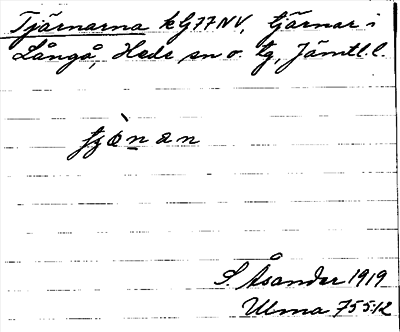 Tjärnarna kG77NV, tjärnar i
Långå, Hede sn o. tg, Jämtl.l.
tjònan
S. Åsander 1919
Ulma 755:12